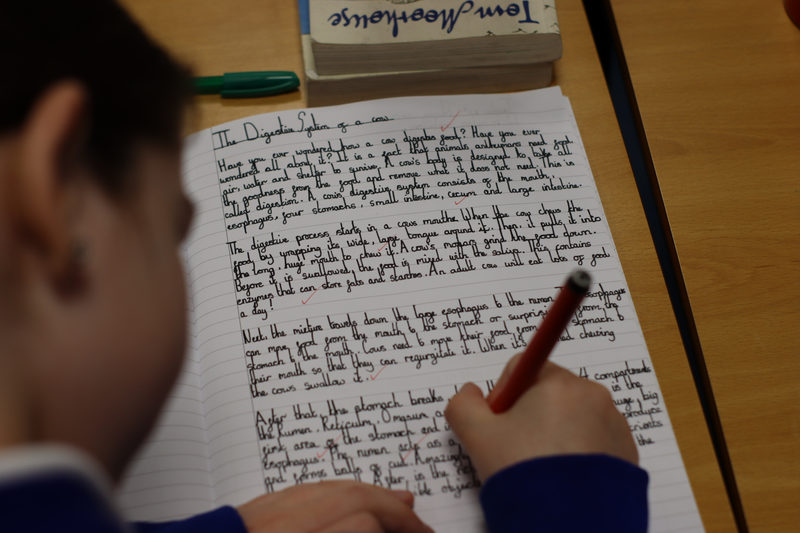 Tom Moorhouse
The Digestive System of a cow
Have you ever wondered how a cow digests food? Have you ever
wondered all about it? It is a fact that animals and humans need food
air, water and shelter to survive. A cow's body is designed to take all
the goodness from the food and remove what it does not need. This is
called digestion. A cow's digestive system consists of the mouth,
esophagus, four stomachs, small intestine, cecum and large intestine.
The digestive process starts in a cows mouth. When the cow chews the
food by wrapping its wide, large tongue around it. Then, it pulls it into
the long, huge mouth to chew it. A cow's molars grind the food down.
Before it is swallowed, the food is mixed with the saliva. This contains
enzymes that can store fats and starches. An adult cow will eat lots of food
a day!
Next, the mixture travels down the large esophagus to the rumen. esophagus
can move food from the mouth to the stomach or surprisingly from the
stomach to the mouth. Cows need to move their food from stomach to
their mouth so that they can regurgitate it. When it's chewing
the cows swallow it.
After that, the stomach breaks 4 compartments
the Rumen, Reticulum, Omasum, is the
first area of the stomach and big
esophagus. The rumen acts as a produce
and forms balls of cud. Amazing
After, is the the